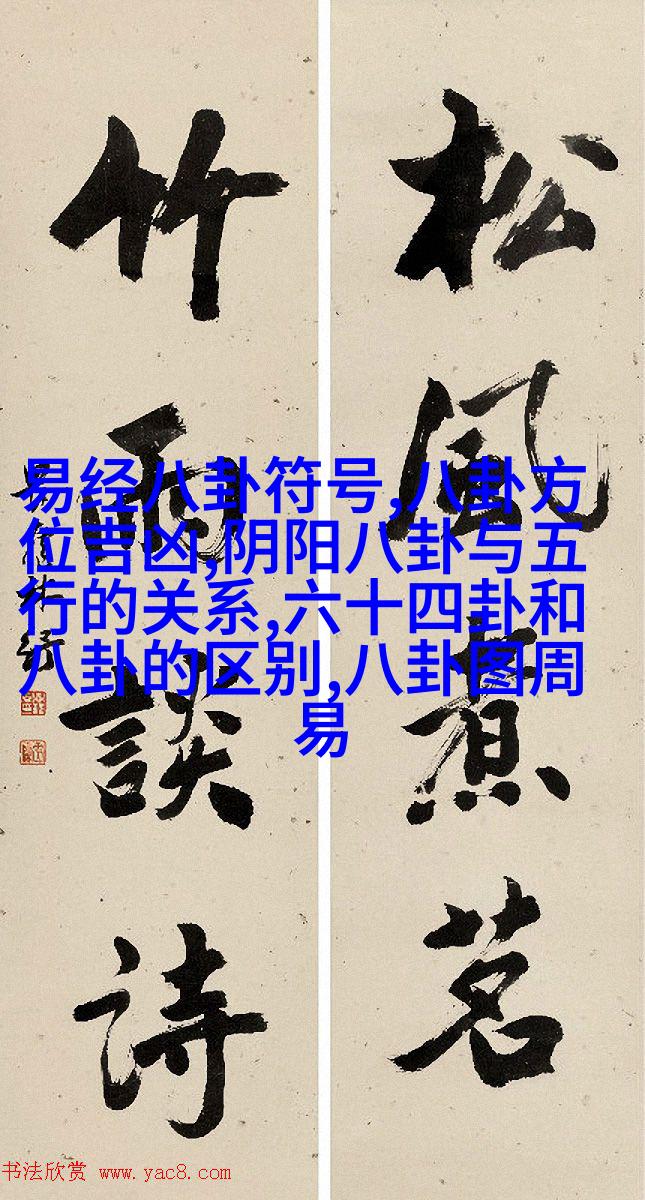 松風煮茗
竹雨談詩
易经八卦符号,八卦方
位吉凶,阴阳八卦与五
行的关系,六十四卦和
八卦的区别,八卦图周
易
书法欣赏 www.yac8.com